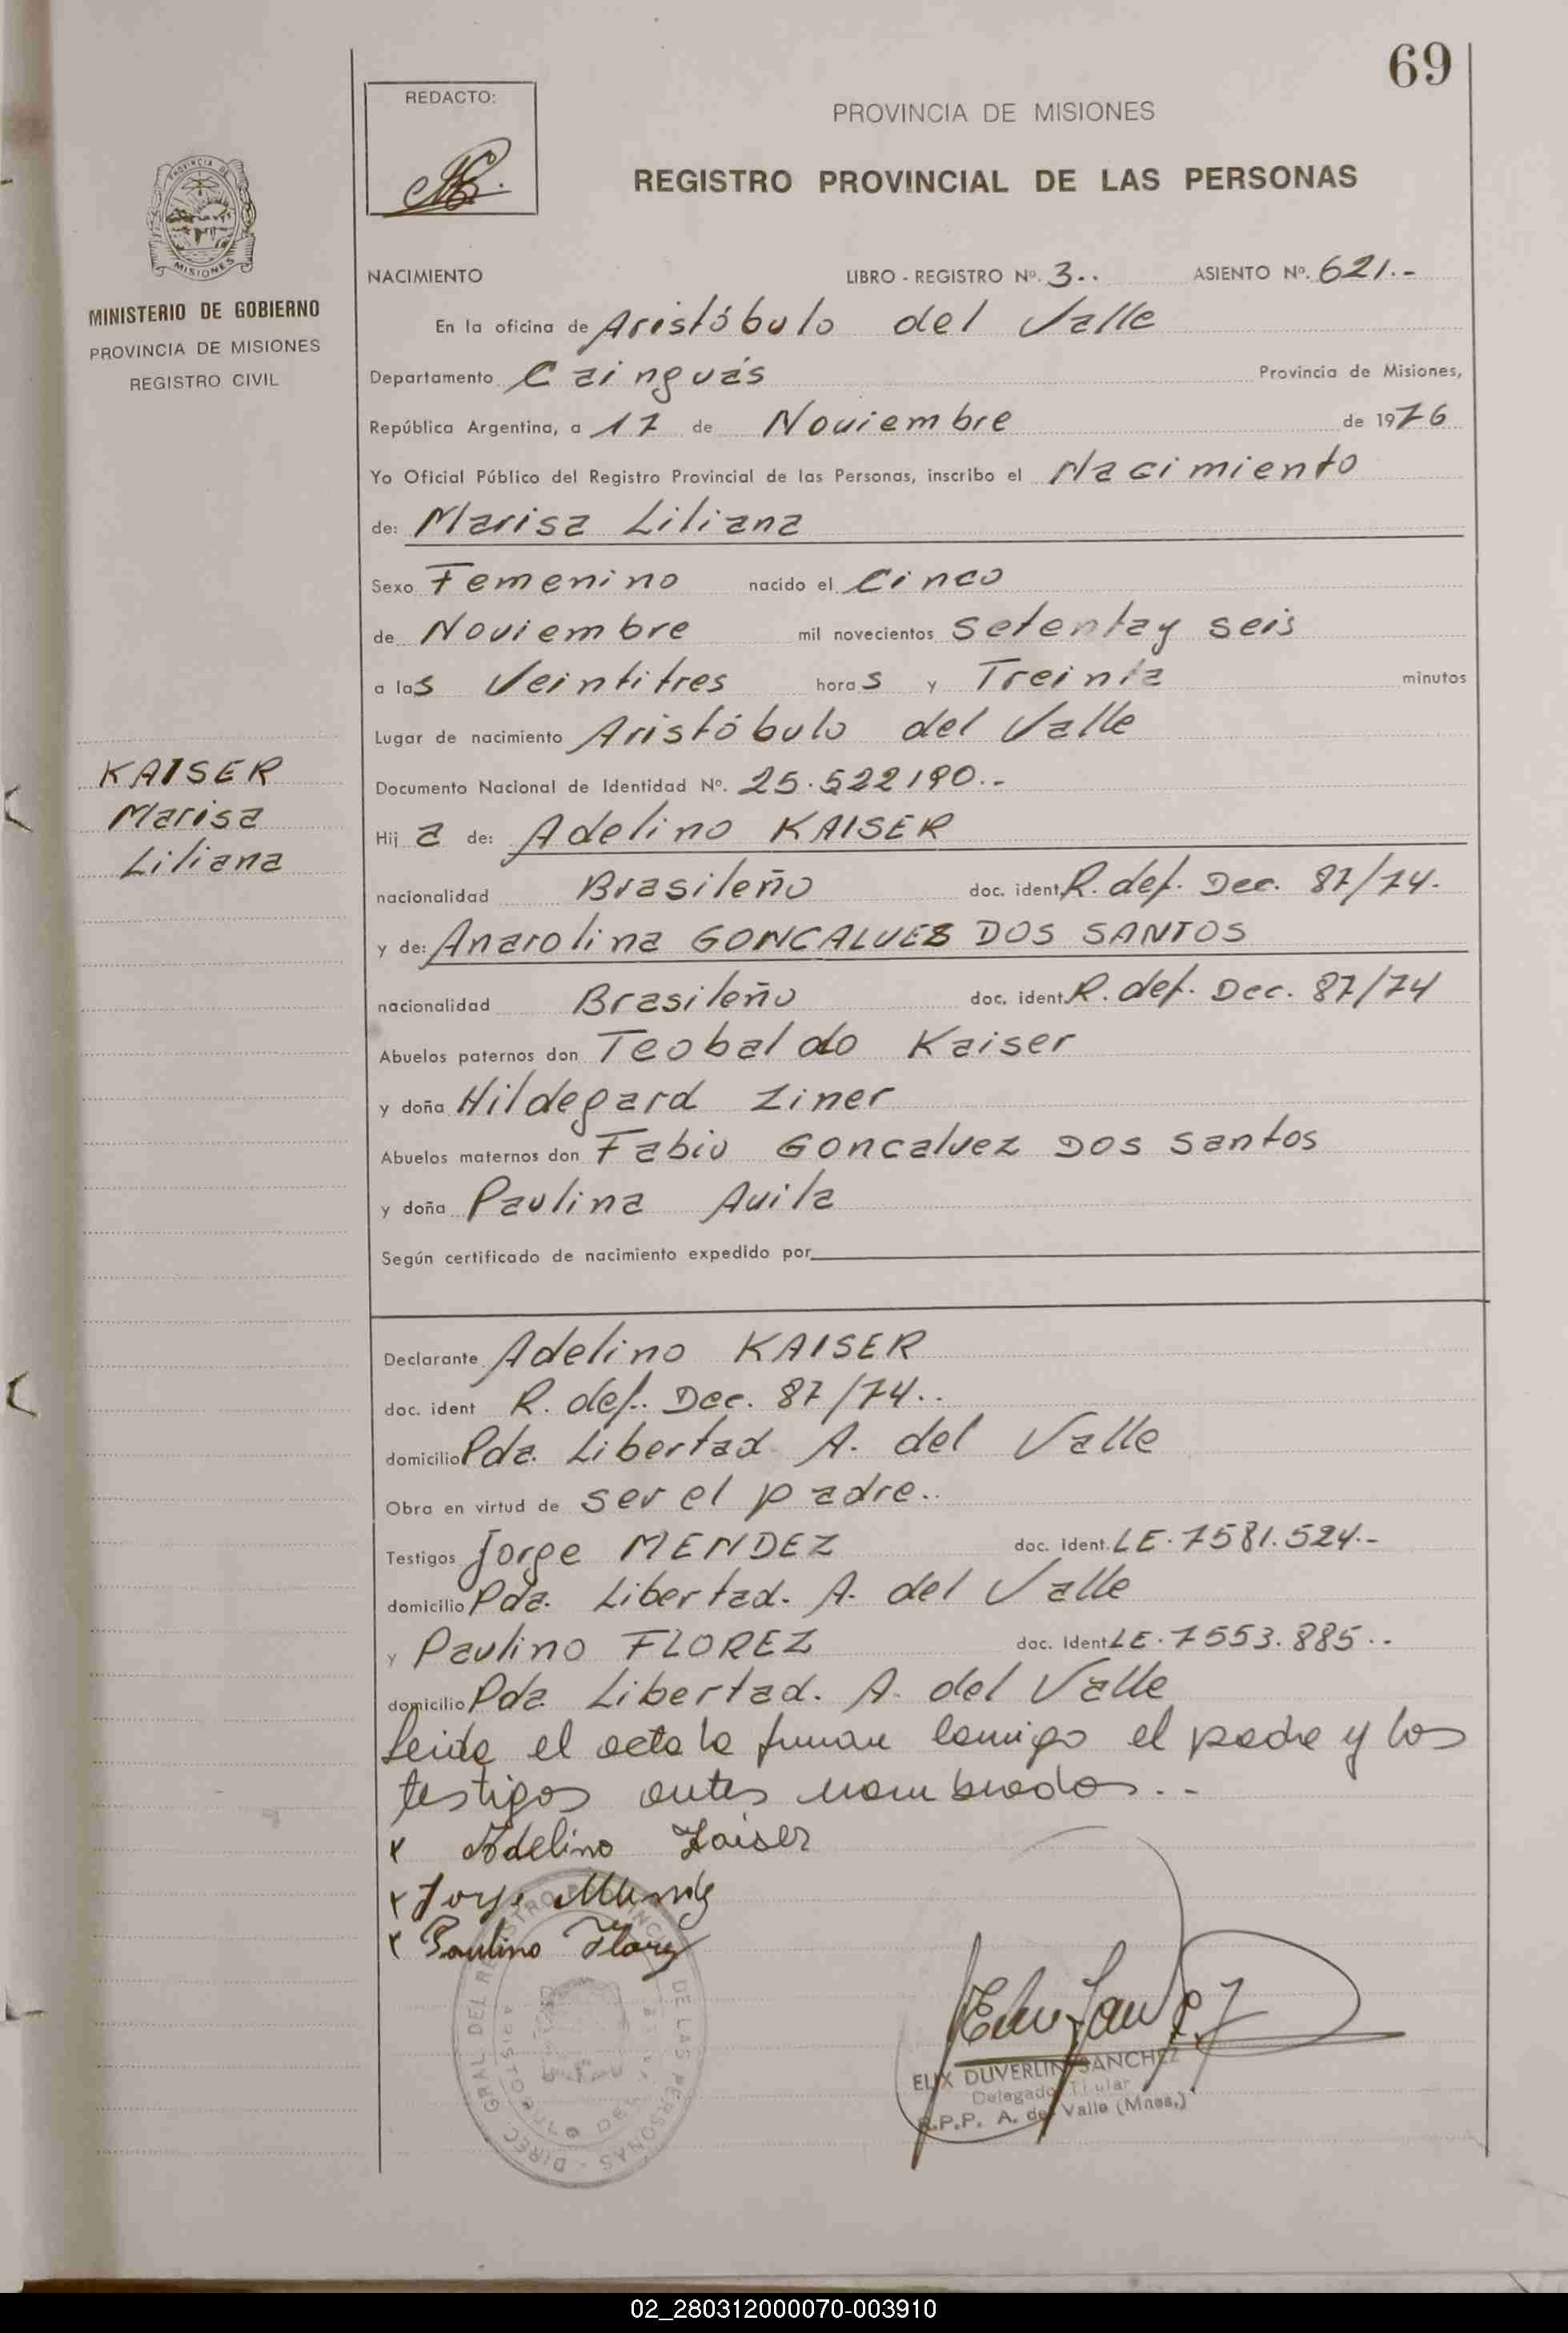 69
REDACTO:
PROVINCIA DE MISIONES
REGISTRO PROVINCIAL DE LAS PERSONAS
MISIONES
MINISTERIO DE GOBIERNO
PROVINCIA DE MISIONES
REGISTRO CIVIL
NACIMIENTO LIBRO - REGISTRO Nº. 3.. ASIENTO Nº. 621.-
En la oficina de Aristóbulo del Valle
Departamento Cainguás Provincia de Misiones,
República Argentina, a 17 de Noviembre de 1976
Yo Oficial Público del Registro Provincial de las Personas, inscribo el Nacimiento
de: Marisa Liliana
Sexo Femenino nacido el Cinco
de Noviembre mil novecientos setentay seis
a las Veintitres horas y Treinta minutos
Lugar de nacimiento Aristóbulo del Valle
KAISER
Marisa
Liliana
Documento Nacional de Identidad Nº. 25.522190.-
Hija de: Adelino KAISER
nacionalidad Brasileño doc. ident. R. def. Dec. 87/74.
y de: Anarolina GONCALVEZ DOS SANTOS
nacionalidad Brasileño doc. ident. R. def. Dec. 87/74
Abuelos paternos don Teobaldo Kaiser
y doña Hildegard Ziner
Abuelos maternos don Fabio Goncalvez Dos Santos
y doña Paulina Avila
Según certificado de nacimiento expedido por
Declarante Adelino KAISER
doc. ident R. def. Dec. 87/74..
domicilio Pda. Libertad A. del Valle
Obra en virtud de ser el padre..
Testigos Jorge MENDEZ doc. Ident. LE. 7581.524.-
domicilio Pda. Libertad. A. del Valle
y Paulino FLOREZ doc. Ident LE. 7553.885..
domicilio Pda Libertad. A. del Valle
Leida el acta la firman conmigo el padre y los
testigos antes nombrados..-
x Adelino Kaiser
x Jorge Mendez
x Paulino Florez
DIREC. GRAL DEL REGISTRO PROVINCIAL DE LAS PERSONAS
ARISTOBULO DEL VALLE
ELIX DUVERLIN SANCHEZ
Delegado Titular
R.P.P. A. del Valle (Mnes.)
02_280312000070-003910